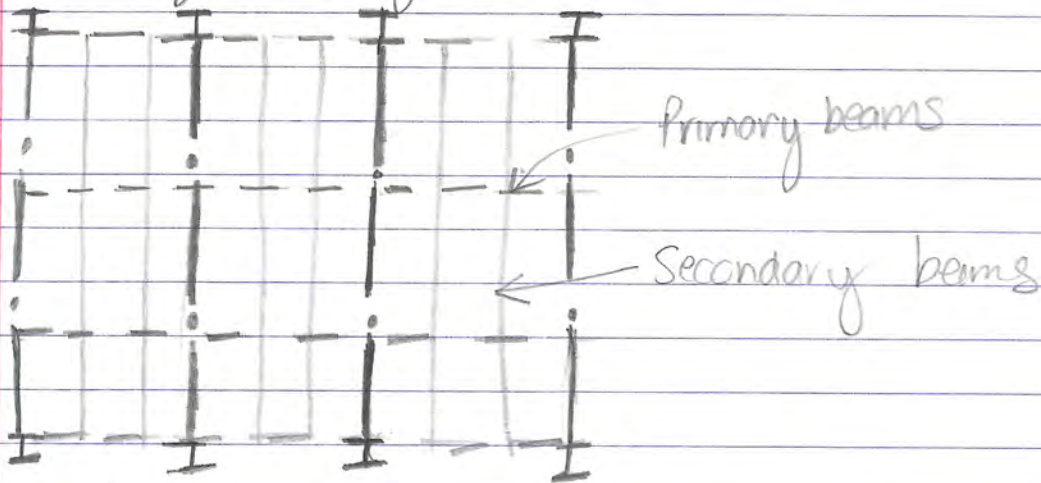 Primary beams
Secondary beams